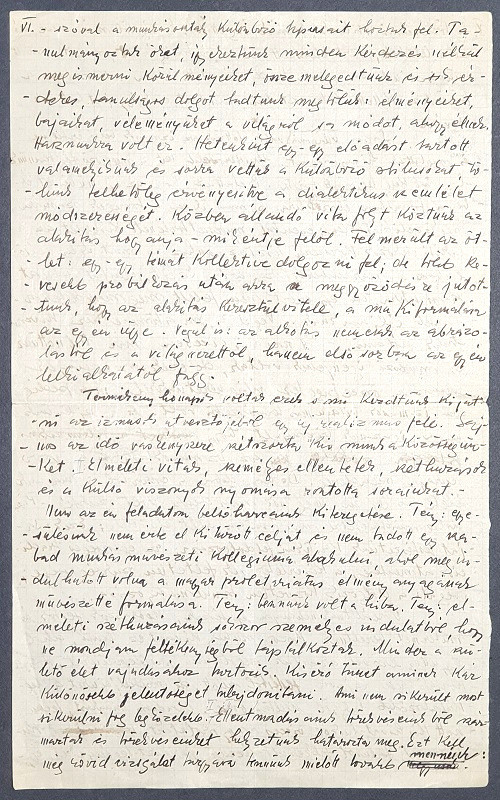 VI. - szóval a munkásosztály különböző típusait hoztuk fel. Ta-
- nulmányoztuk őket, igyekeztünk minden kérdezés nélkül
megismerni körülményeiket, összemelegedtünk és sok ér-
- dekes, tanulságos dolgot tudtunk meg tőlük: élményeiket,
bajaikat, véleményüket a világról s a módot, ahogy élnek.
Hasznunkra volt ez. Hetenként egy-egy előadást tartott
valamelyikünk és sorra vettük a különböző stílusokat, tő-
- lünk telhetőleg érvényesítve a dialektikus szemlélet
módszerességét. Közben állandó vita folyt köztünk az
alkotás hogyanja - miértje felől. Felmerült az öt-
- let: egy-egy témát kollektíve dolgozni fel, de több ke-
- vesebb próbálkozás után arra a meggyőződésre jutot-
- tunk, hogy az alkotás keresztülvitele, a mű kiformálása
az egyén ügye. Végül is: az alkotás nemcsak az ábrázo-
- lástól és a világnézettől, hanem első sorban az egyén
lelki alkatától függ.
Termékeny hónapok voltak ezek s mi kezdtünk kijut-
- ni az izmusok útvesztőjéből egy új realizmus felé. Saj-
- nos az idő vasényszere szétszórta kis munkaközösségün-
- ket. Elméleti viták, személyes ellentétek, széthúzások
és a külső viszonyok nyomása rontotta sorainkat. -
Nem az én feladatom belső harcaink kiteregetése. Tény: egye-
- sülésünk nem érte el kitűzött célját és nem tudott egy sza-
- bad munkás művészeti kollégiummá alakulni, ahol megin-
- dulhatott volna a magyar proletariátus élményanyagának
művészetté formálása. Tény: bennünk volt a hiba. Tény: el-
méleti széthúzásaink sokszor személyes indulatból, hogy
ne mondjam féltékenységből táplálkoztak. Mindez a szü-
- lető élet vajúdásához tartozik. Kísérő tünet aminek kár
különösebb jelentőséget tulajdonítani. Ami nem sikerült most
sikerülni fog legközelebb. Ellentmondásaink törekvéseinkből szár-
maztak és törekvéseinket helyzetünk határozta meg. Ezt kell
még rövid vizsgálat tárgyává tennünk mielőtt tovább mennénk: